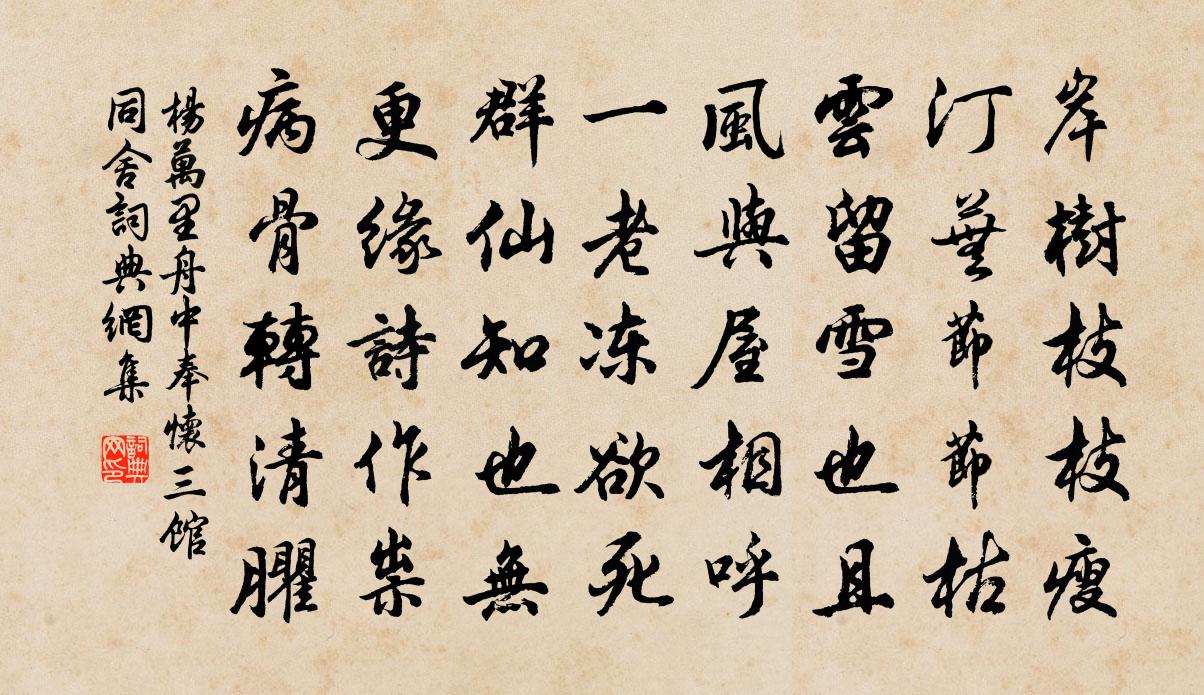 岸樹枝枝瘦
汀蕪節節枯
雲留雪也且
風與屋相呼
一老凍欲死
群仙知也無
更緣詩作祟
病骨轉清臞
楊萬里舟中奉懷三館
同舍詞典網集
詞典网印